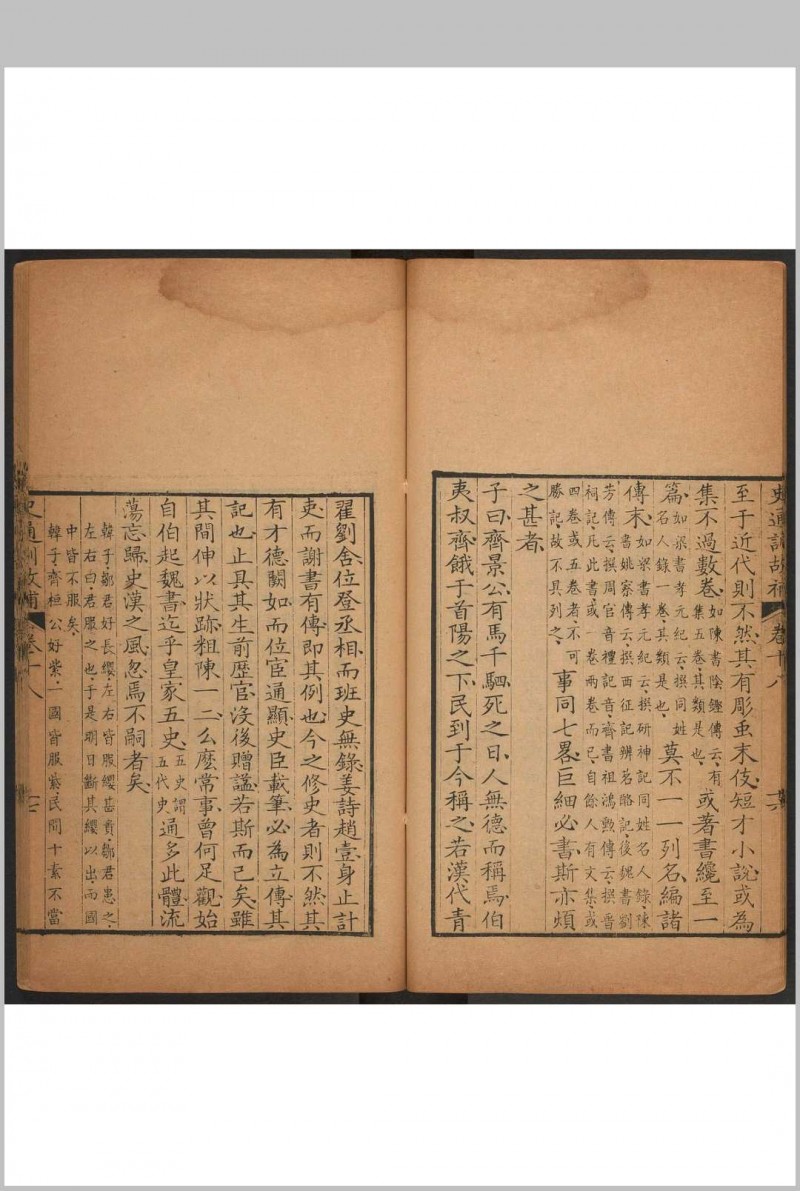 史通訓故補 卷十八
至于近代則不然其有彫虫末伎短才小說或為
集不過數卷如陳書陰鏗傳云有集五卷其類是也或著書纔至一
篇如梁書孝元紀云撰同姓名人錄一卷其類是也莫不一一列名編諸
傳末如梁書孝元紀云撰研神記同姓名人錄陳書姚察傳云撰西征記辨茗酪記後魏書劉
芳傳云撰周官音禮記音齊書祖鴻勲傳云撰晉祠記凡此書或一卷兩卷而已自餘人有文集或
四卷或五卷者不可勝記故不具列之事同七畧巨細必書斯亦煩
之甚者
子曰齊景公有馬千駟死之日人無德而稱焉伯
夷叔齊餓于首陽之下民到于今稱之若漢代青
翟劉舍位登丞相而班史無錄姜詩趙壹身止計
吏而謝書有傳即其例也今之修史者則不然其
有才德闕如而位宦通顯史臣載筆必為立傳其
記也止具其生前歷官沒後贈諡若斯而已矣雖
其間伸以狀跡粗陳一二么麼常事曾何足觀始
自伯起魏書迄乎皇家五史五史謂五代史通多此體流
蕩忘歸史漢之風忽焉不嗣者矣
韓子鄒君好長纓左右皆服纓甚貴鄒君患之
左右曰君服之也于是明日斷其纓以出而國
中皆不服矣
韓子齊桓公好紫一國皆服紫民間十素不當
史通訓故補 卷十八